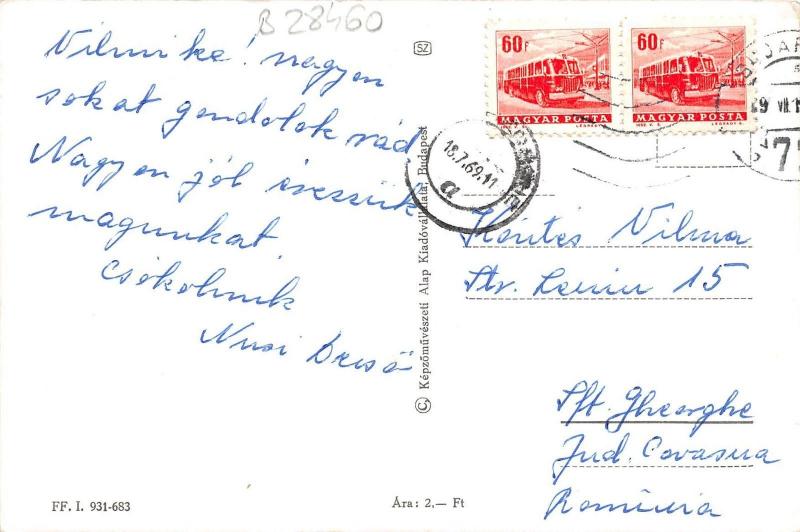 B 28460
Vilmike! nagyon
sokat gondolok rád
Nagyon jól érezzük
magunkat.
Csókolunk
Nusi Dezső
FF. I. 931-683
Ára: 2,— Ft
© Képzőművészeti Alap Kiadóvállalata, Budapest
SZ
60F
MAGYAR POSTA
LÉGRÁDY S.
60F
MAGYAR POSTA
LÉGRÁDY S.
18.7.69.11
a
69 VII.1
Kóntés Vilma
Str. Lenin 15
Sft. Gheorghe
Jud. Covasna
România